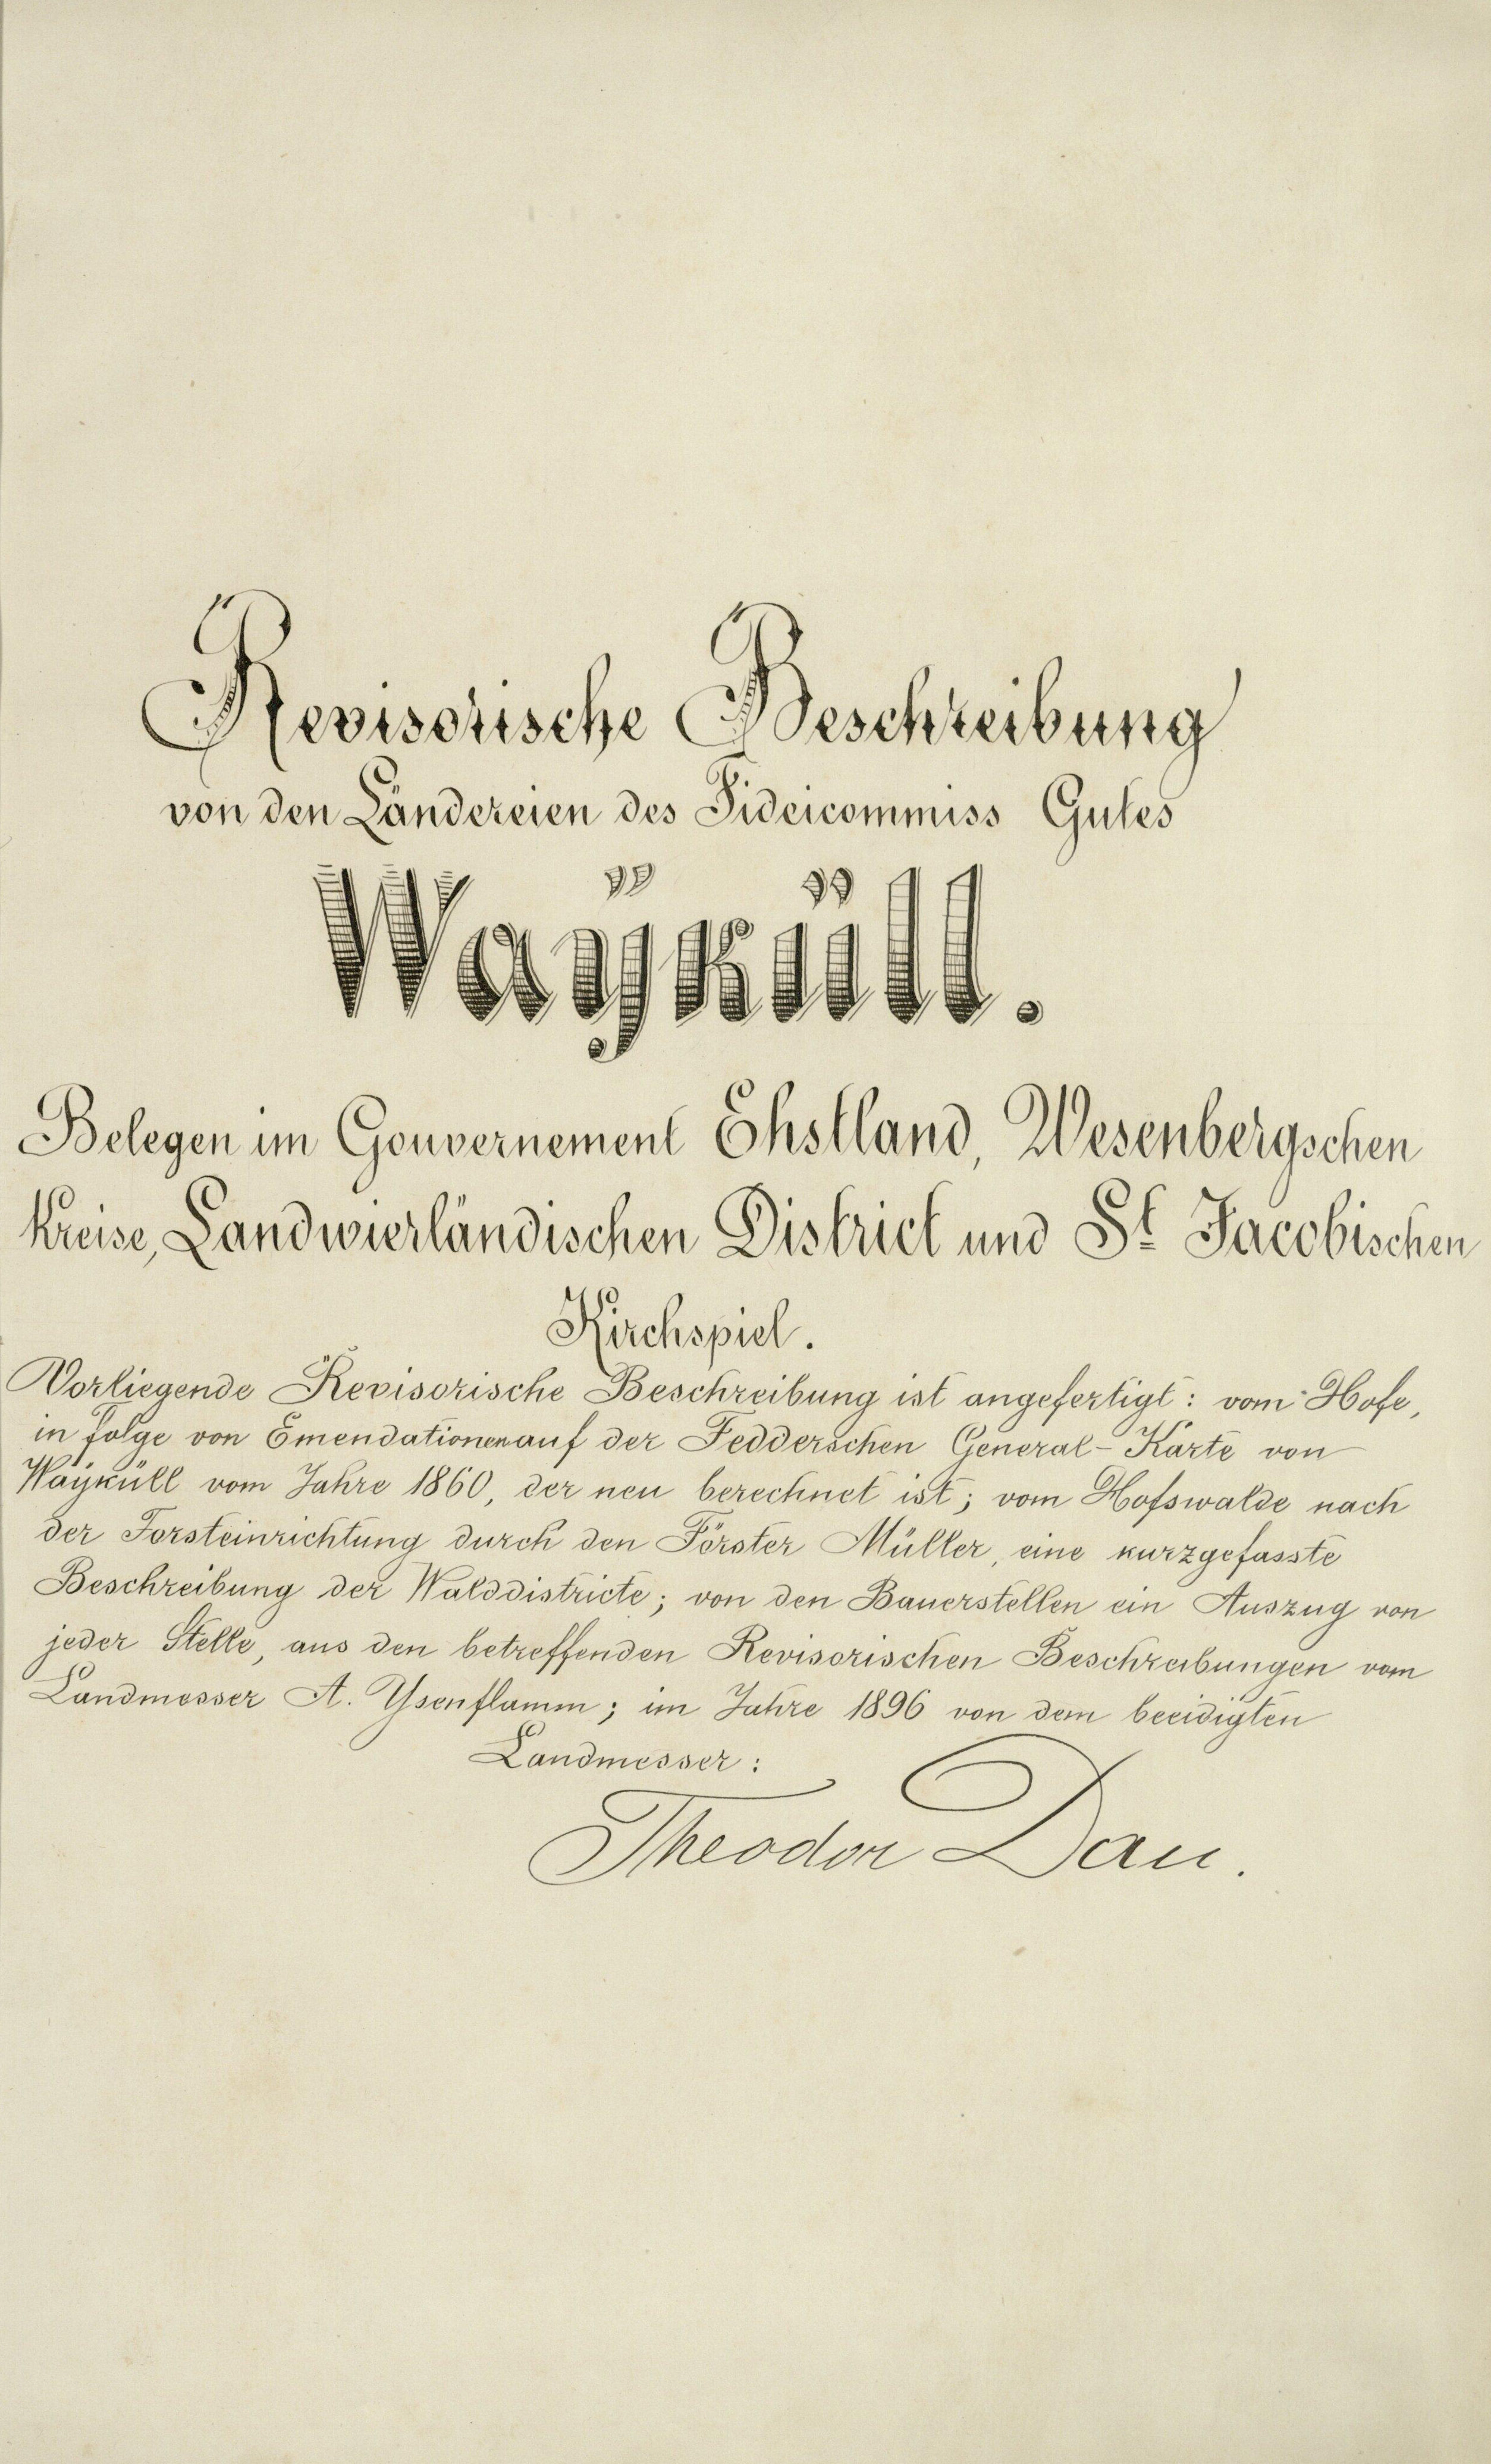 Revisorische Beschreibung
von den Ländereien des Fideicommiss Gutes
Waÿküll.
Belegen im Gouvernement Ehstland, Wesenbergschen
Kreise, Landwierländischen District und St Jacobischen
Kirchspiel.
Vorliegende Revisorische Beschreibung ist angefertigt: vom Hofe,
in folge von Emendationen auf der Fedderschen General-Karte von
Waÿküll vom Jahre 1860, der neu berechnet ist; vom Hofswalde nach
der Forsteinrichtung durch den Förster Müller, eine kurzgefasste
Beschreibung der Walddistricte; von den Bauerstellen ein Auszug von
jeder Stelle, aus den betreffenden Revisorischen Beschreibungen vom
Landmesser A. Ysenflamm; im Jahre 1896 von dem beeidigten
Landmesser:
Theodor Dau.